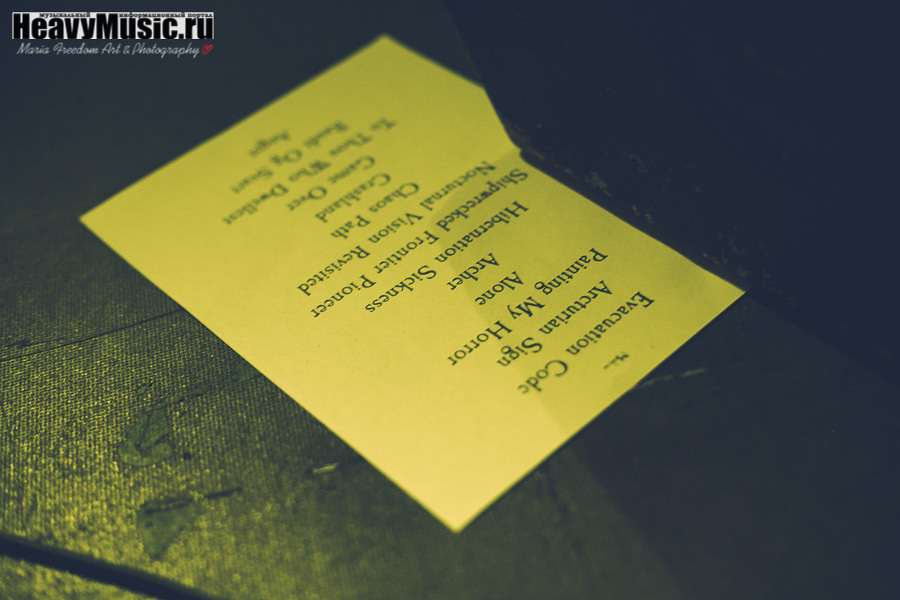 музыкальный информационный портал
HeavyMusic.ru
Maria Freedom Art & Photography
Evacuation Code
Arcturian Sign
Painting My Horror
Alone
Archer
Hibernation Sickness
Shipwrecked Frontier Pioneer
Nocturnal Vision Revisited
Chaos Path
Crashland
Game Over
To Thou Who Dwellest
Raudt Og Svart
Angst